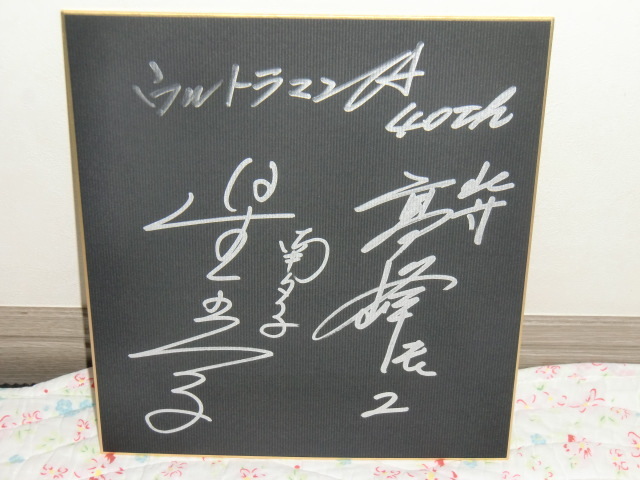 ウルトラマンA
40th
高峰圭二
星光子
南夕子